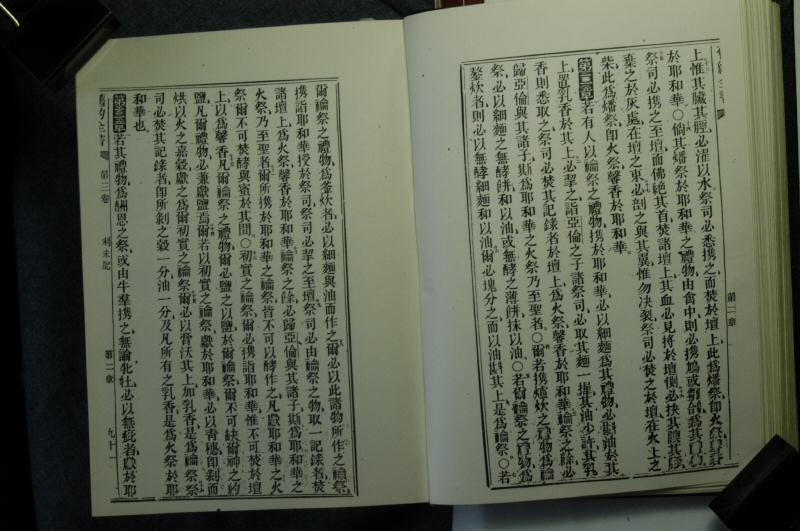 上惟其臟其脛必濯以水祭司必悉攜之而焚於壇上此爲燔祭卽火祭馨香
於耶和華○倘其燔祭於耶和華之禮物由禽中則必攜鳩或雛鴿爲其禮物
祭司必攜之至壇而扭絕其首焚諸壇上其血必見搾於壇側必抉其膆其
棄之於灰處在壇之東必剖之與其翼惟勿決裂祭司必焚之於壇在火上之
柴此爲燔祭卽火祭馨香於耶和華
第二章若有人以禴祭之禮物攜於耶和華必以細麵爲其禮物必斟油於其
上置乳香於其上必挈之詣亞倫之子諸祭司必取其麵一握其油少許其乳
香則悉取之祭司必焚其記錄者於壇上爲火祭馨香於耶和華禴祭之餘必
歸亞倫與其諸子斯爲耶和華之火祭乃至聖者○爾若攜爐炊之禮物爲禴
祭必以細麵之無酵餅和以油或無酵之薄餅抹以油○若爾禴祭之禮物爲
鏊炊者則必以無酵細麵和以油爾必塊分之而以油斟其上是爲禴祭○若
第二章
爾禴祭之禮物爲釜炊者必以細麵與油而作之爾必以此諸物所作之禴祭
攜詣耶和華授於祭司祭司必挈之至壇祭司必由禴祭之物取一記錄者焚
諸壇上爲火祭馨香於耶和華禴祭之餘必歸亞倫與其諸子斯爲耶和華之
火祭乃至聖者爾所攜於耶和華之禴祭皆不可以酵作之凡獻耶和華之火
祭爾不可焚酵與蜜於其間○初實之禴祭爾必攜詣耶和華惟不可焚於壇
上以爲馨香凡爾禴祭之禮物爾必鹽之以鹽於爾禴祭爾不可缺爾神之約
鹽凡爾禮物必兼獻鹽焉爾若以初實之禴祭獻於耶和華必以靑穗卽刈而
烘以火之嘉穀獻之爲爾初實之禴祭爾必以膏沃其上加乳香是爲禴祭祭
司必焚其記錄者卽所剝之穀一分油一分及凡所有之乳香是爲火祭於耶
和華也
第三章若其禮物爲酬恩之祭或由牛羣攜之無論牝牡必以無疵者獻於耶
舊約全書 第三卷 利未記 第二章 九十一